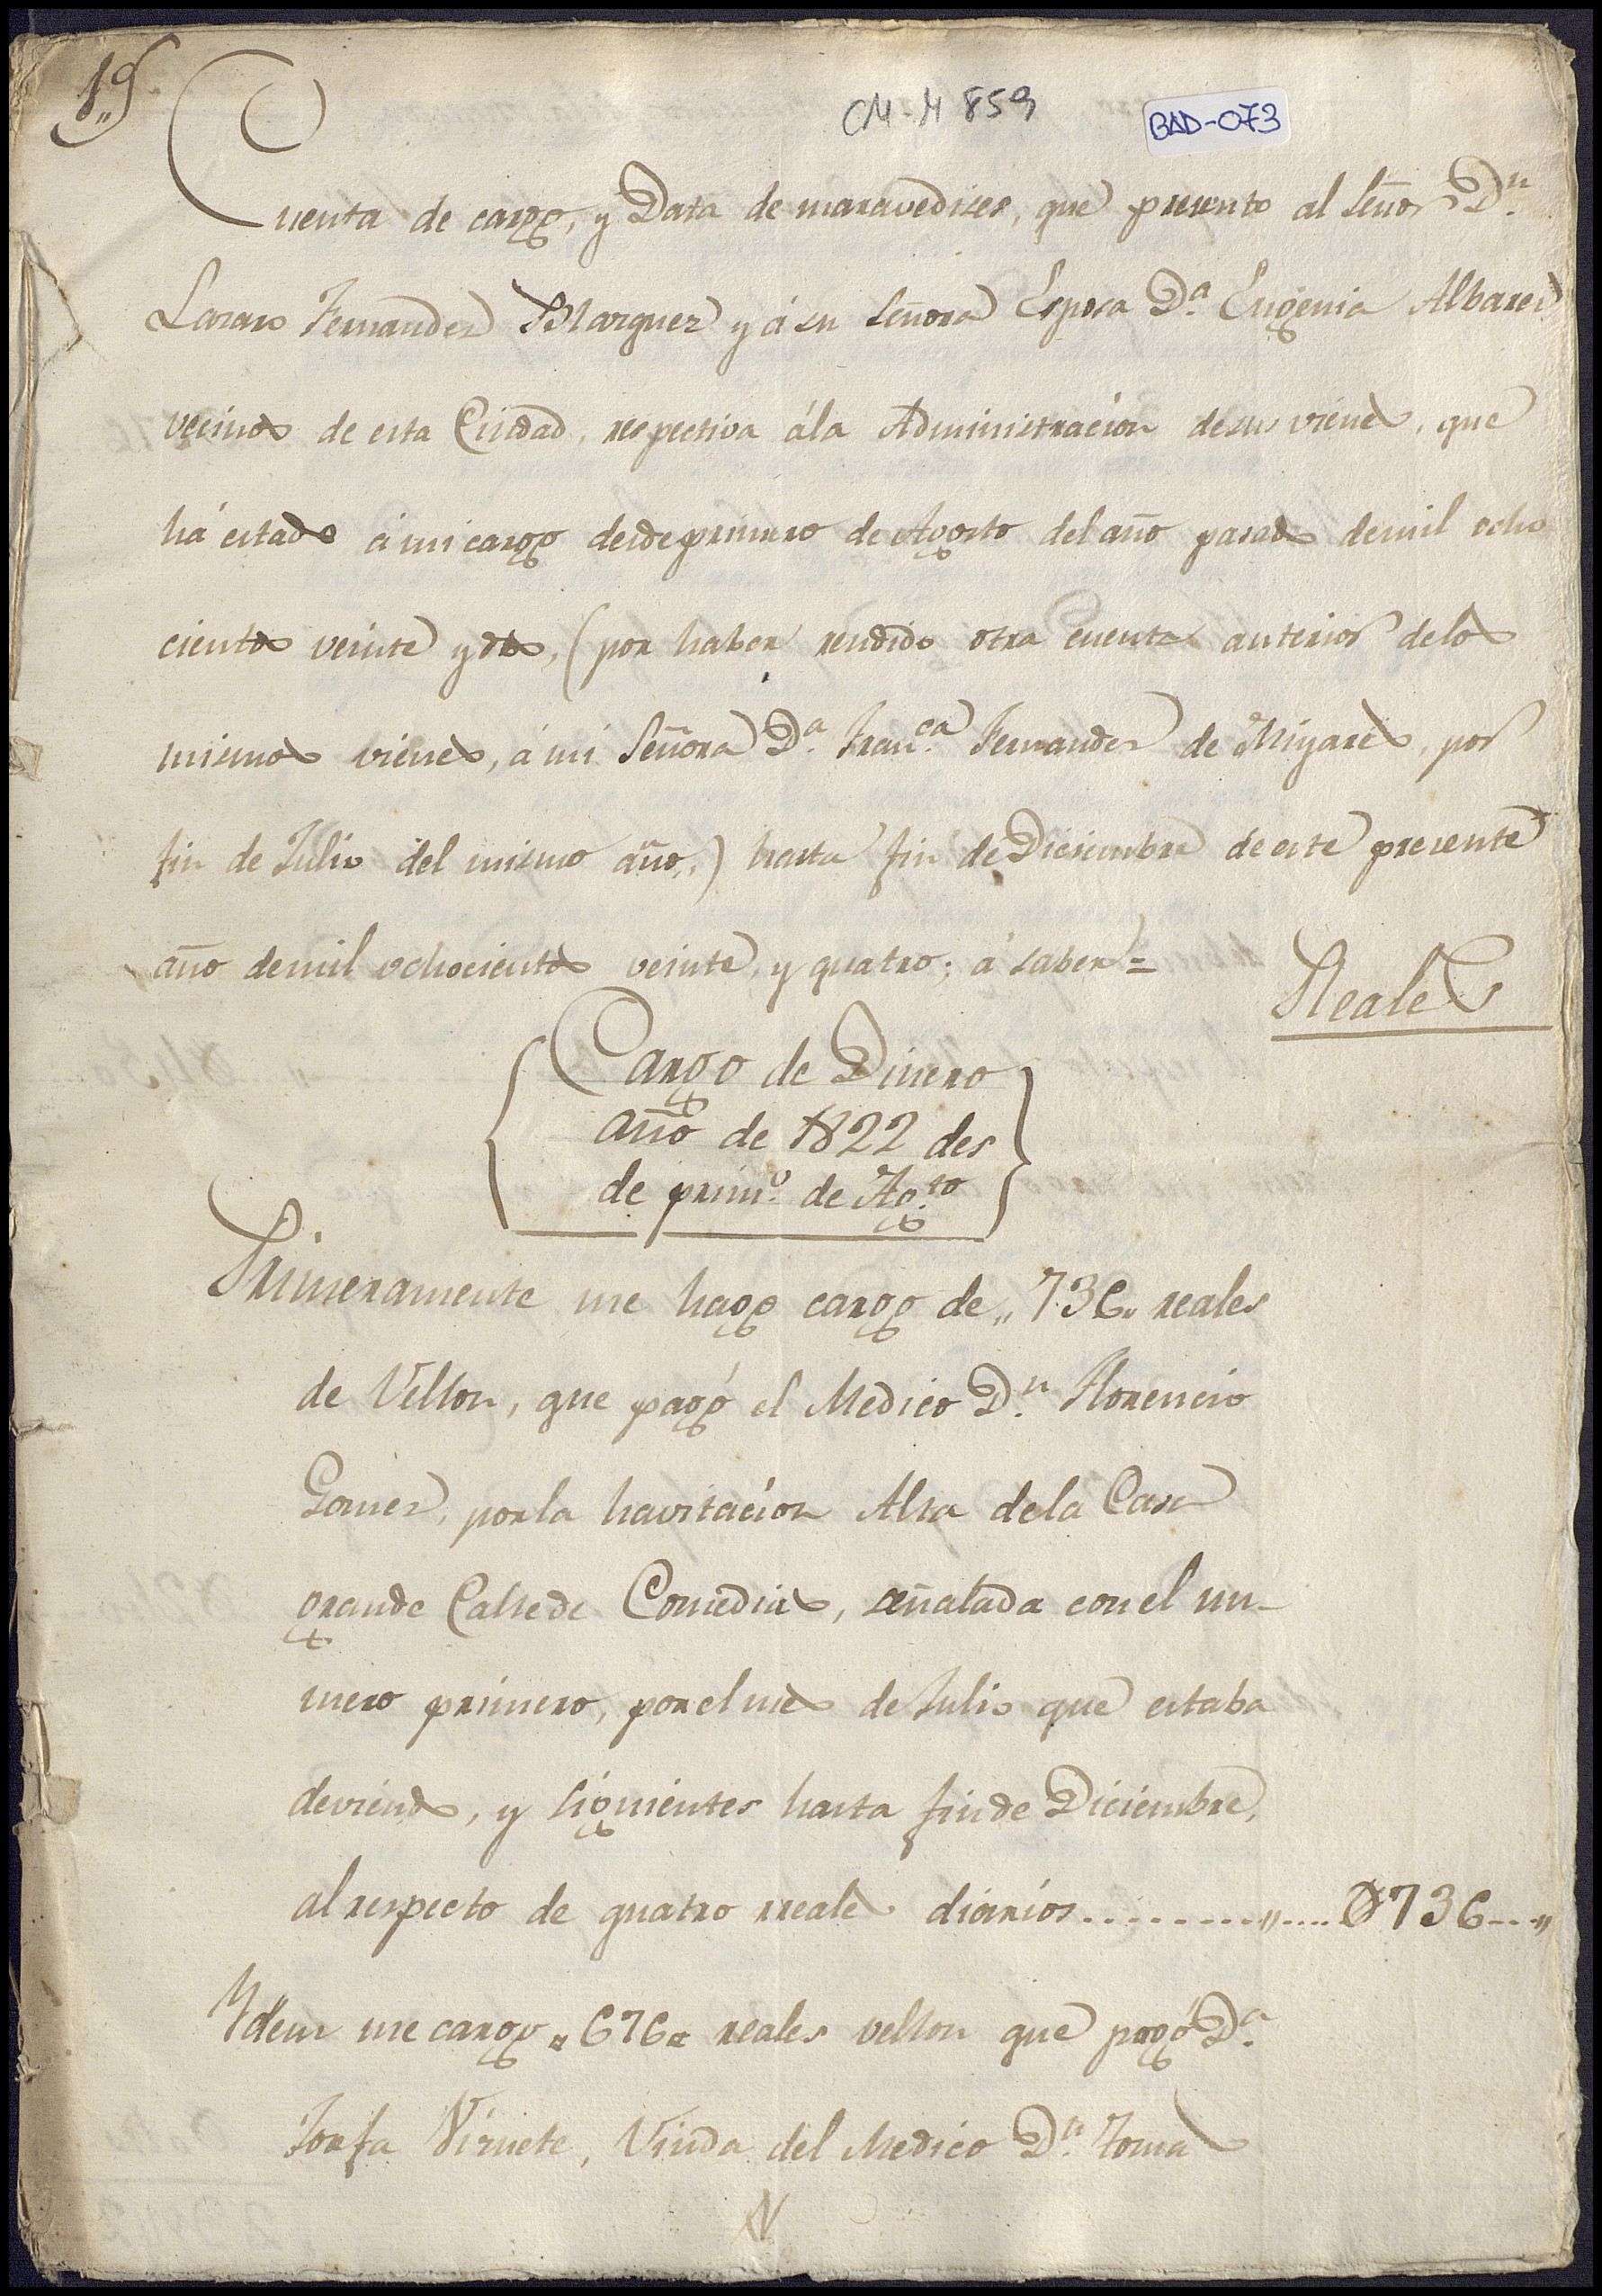 1º
CM-M 859
BAD-073
Cuenta de cargo, y Data de maravedises, que presento al Señor Dn.
Lazaro Fernandez Marquez y á su Señora Esposa Dª. Eugenia Albarez
vecinos de esta Ciudad, respectiva ála Administracion desus vienes, que
há estado á mi cargo desdeprimero de Agosto del año pasado demil ocho
cientos veinte ydos, (por haber rendido otra cuenta anterior delos
mismos vienes, á mi Señora Dª. Franca. Fernandez de Miyares, por
fin de Julio del mismo año,,) hasta fin de Diciembre de este presente
año demil ochocientos veinte, y quatro; á saber=
Reales
Cargo de Dinero
año de 1822 des
de primº. de Agto
Primeramente me hago cargo de,, 736,, reales
de Vellon, que pagó el Medico Dn. Florencio
Gomez, porla havitacion Alta dela Casa
grande Callede Comedias, señalada conel nu-
mero primero, porelmes de Julio que estaba
deviendo, y siguientes hasta finde Diciembre,
alrespecto de quatro rreales diarios........,,....Ø736...,,
Ydem me cargo 676 reales vellon que pagó Dª.
Josefa Viruete, Viuda del Medico Dn. Tomas